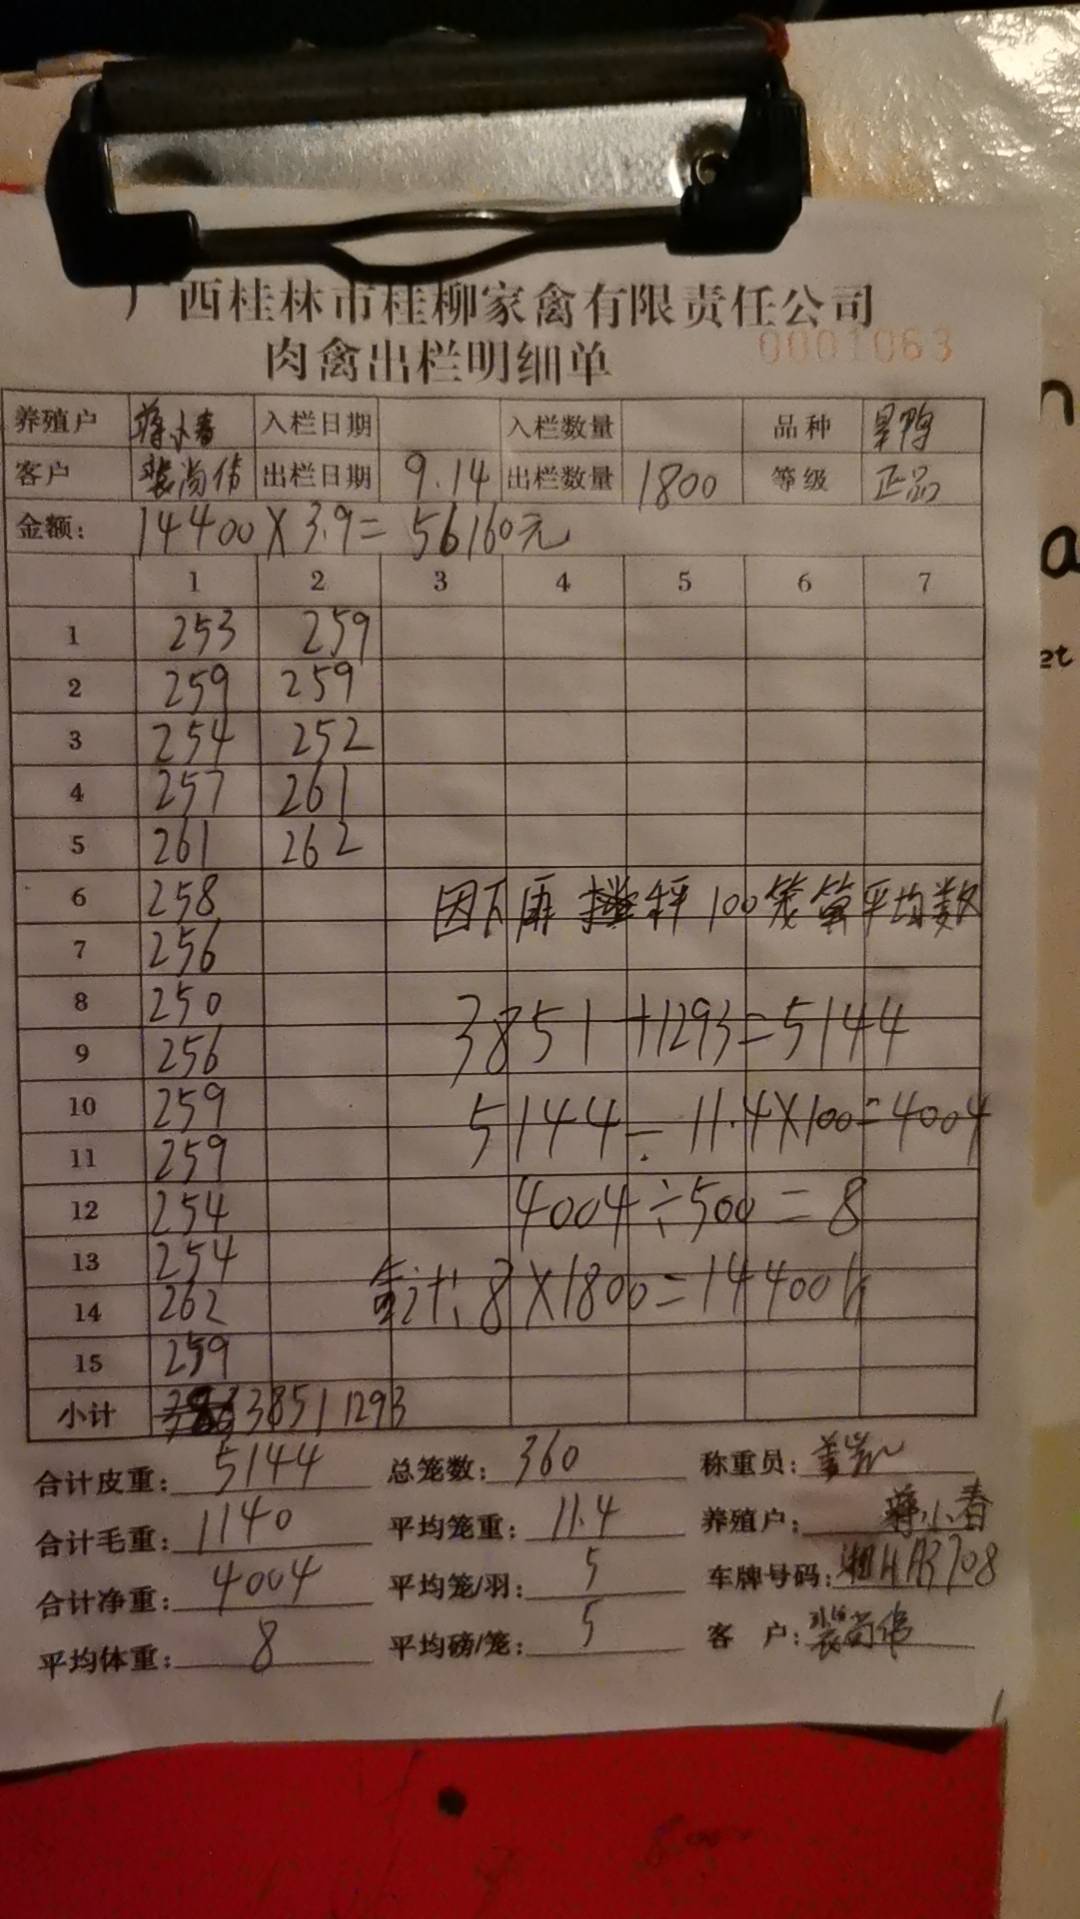 广西桂林市桂柳家禽有限责任公司
肉禽出栏明细单 0001063
养殖户 蒋小春 入栏日期 入栏数量 品种 旱鸭
客户 裴尚伟 出栏日期 9.14 出栏数量 1800 等级 正品
金额: 14400X3.9=56160元
1 2 3 4 5 6 7
1 253 259
2 259 259
3 254 252
4 257 261
5 261 262
6 258
因下雨 秤100笼算平均数
7 256
8 250
3851+1293=5144
9 256
10 259
5144-11.4X100=4004
11 259
12 254
4004÷500=8
13 254
14 262
计:8X1800=14400斤
15 259
小计 3851 1293
合计皮重: 5144 总笼数: 360 称重员:
合计毛重: 1140 平均笼重: 11.4 养殖户: 蒋小春
合计净重: 4004 平均笼/羽: 5 车牌号码:
平均体重: 8 平均磅/笼: 5 客户: 裴尚伟